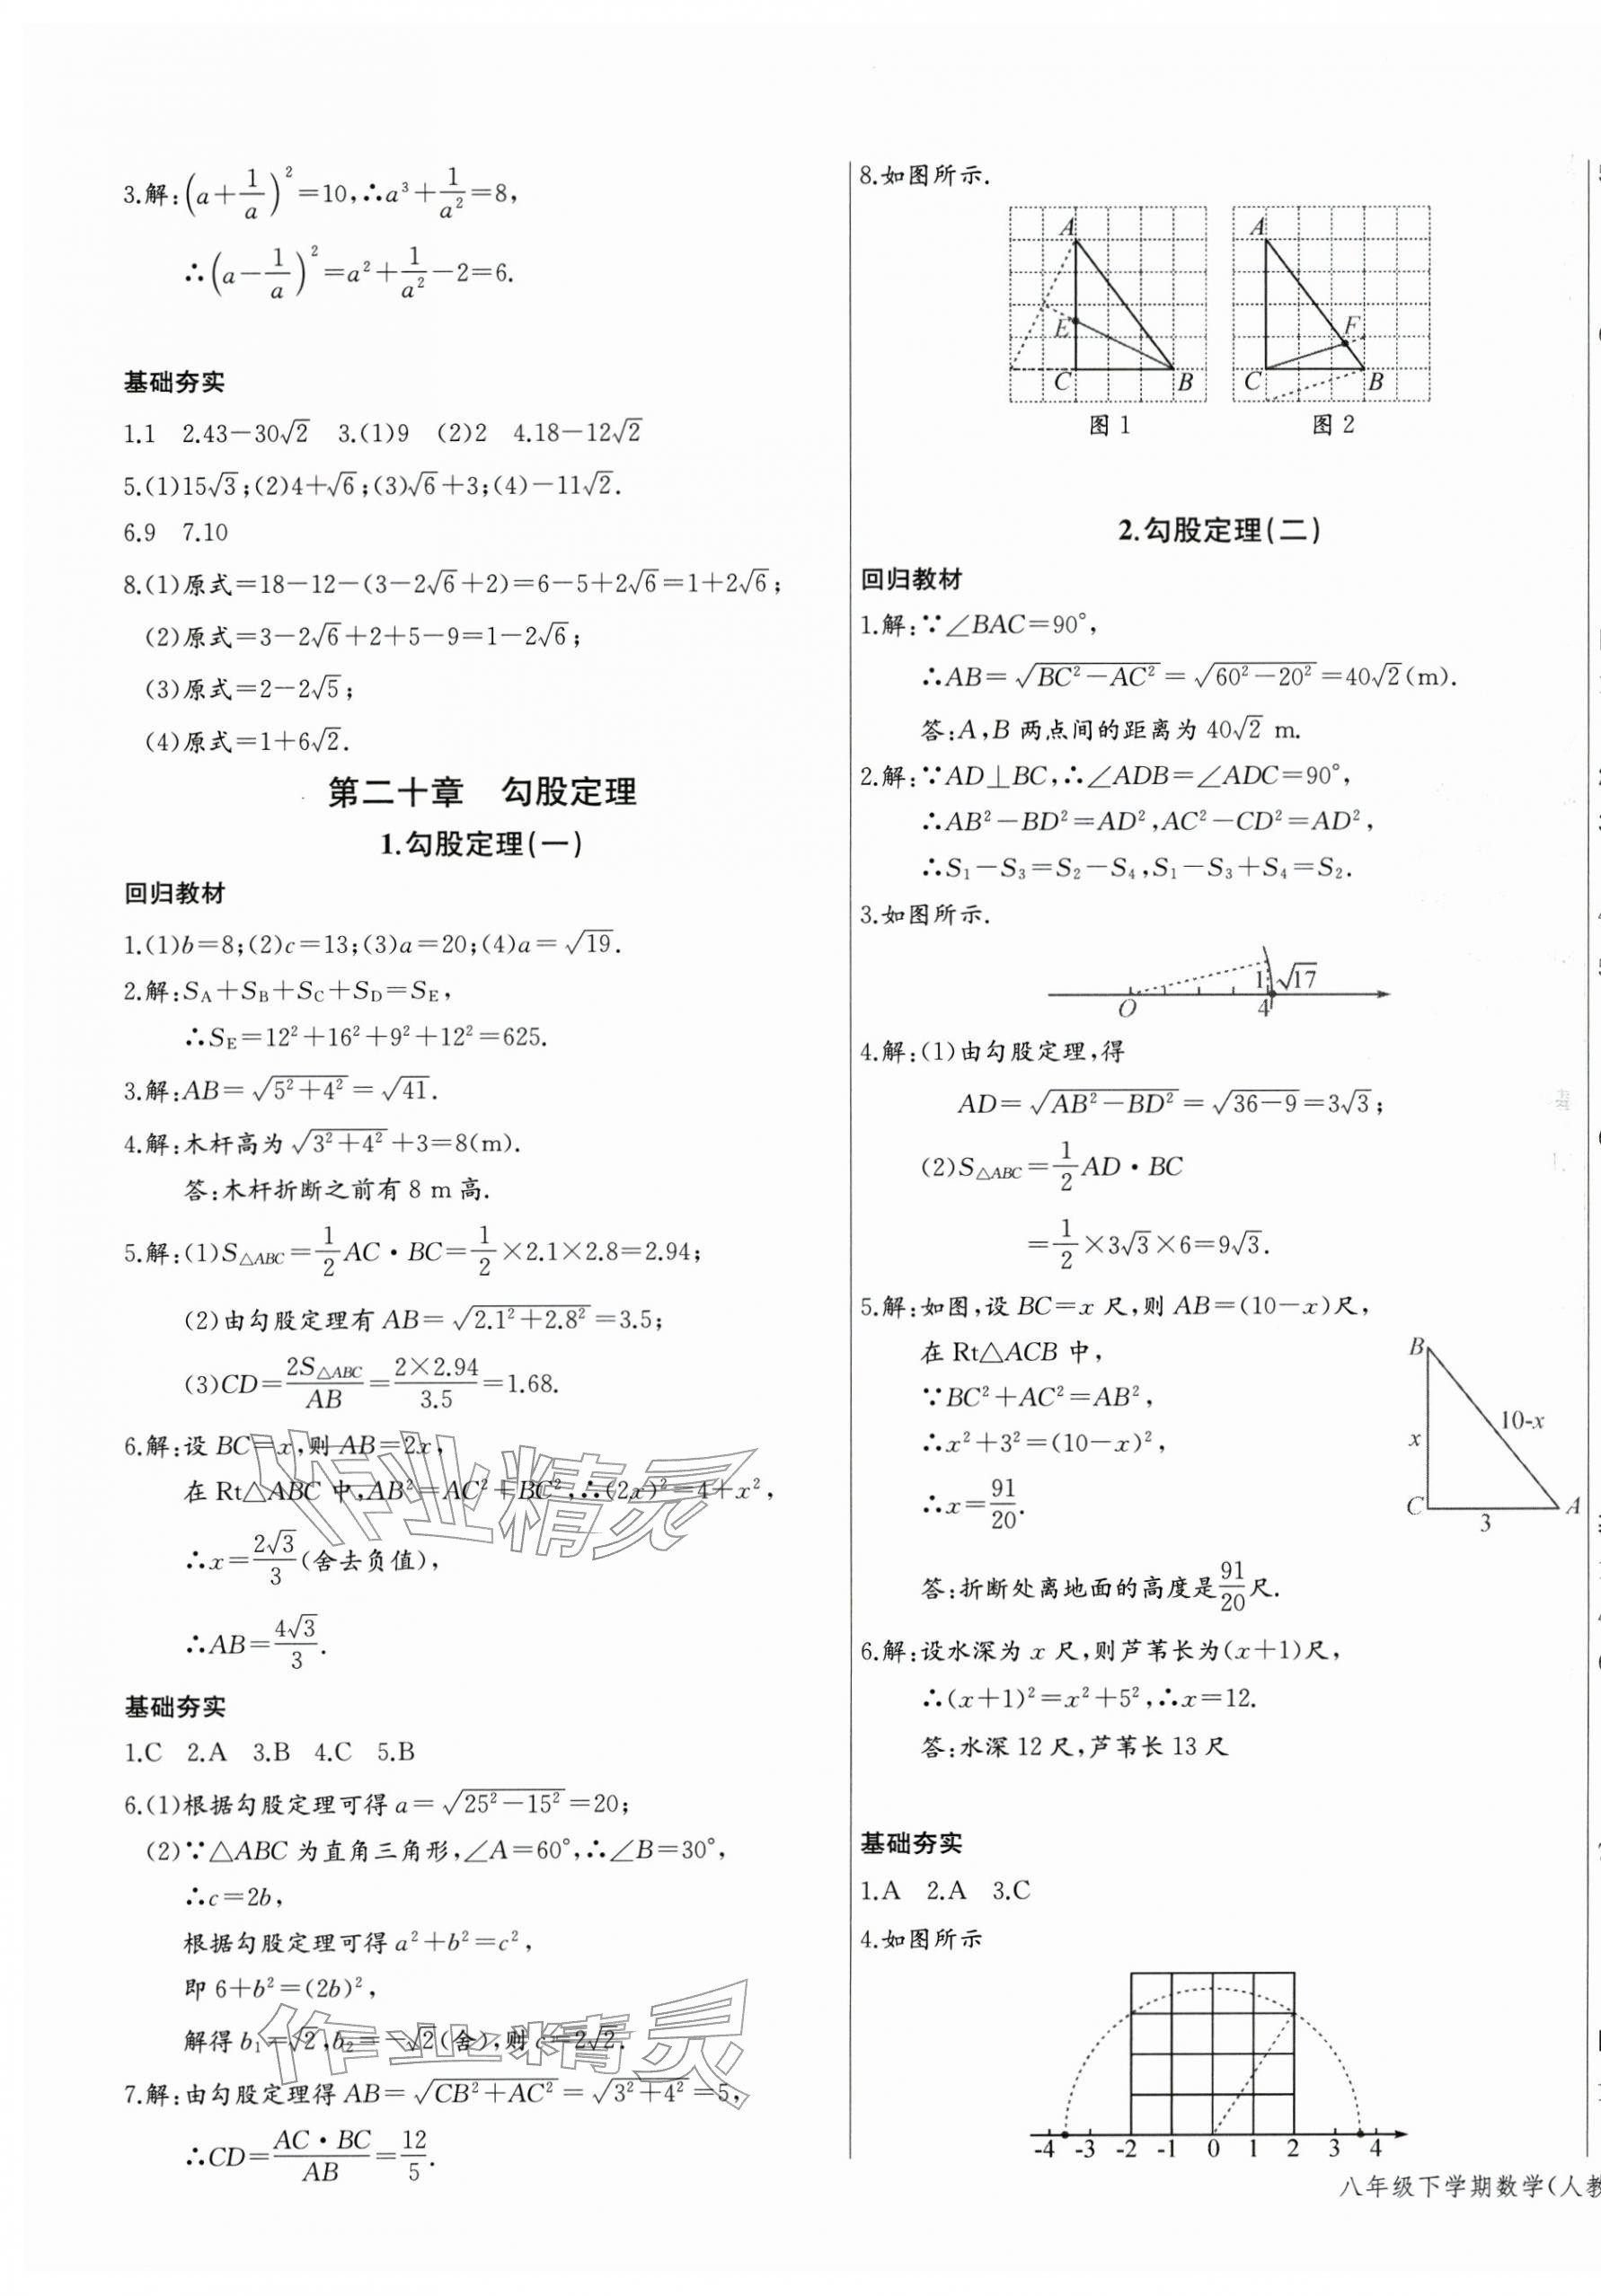 3.解:(a+1/a)²=10,∴a³+1/a²=8,
∴(a-1/a)²=a²+1/a²-2=6.
基础夯实
1.1 2.43-30√2 3.(1)9 (2)2 4.18-12√2
5.(1)15√3;(2)4+√6;(3)√6+3;(4)-11√2.
6.9 7.10
8.(1)原式=18-12-(3-2√6+2)=6-5+2√6=1+2√6;
(2)原式=3-2√6+2+5-9=1-2√6;
(3)原式=2-2√5;
(4)原式=1+6√2.
第二十章 勾股定理
1.勾股定理(一)
回归教材
1.(1)b=8;(2)c=13;(3)a=20;(4)a=√19.
2.解:S_A+S_B+S_C+S_D=S_E,
∴S_E=12²+16²+9²+12²=625.
3.解:AB=√(5²+4²)=√41.
4.解:木杆高为√(3²+4²)+3=8(m).
答:木杆折断之前有8 m高.
5.解:(1)S△ABC=1/2AC·BC=1/2×2.1×2.8=2.94;
(2)由勾股定理有AB=√(2.1²+2.8²)=3.5;
(3)CD=2S△ABC/AB=2×2.94/3.5=1.68.
6.解:设BC=x,则AB=2x,
在Rt△ABC中,AB²=AC²+BC²,∴(2x)²=4+x²,
∴x=2√3/3(舍去负值),
∴AB=4√3/3.
基础夯实
1.C 2.A 3.B 4.C 5.B
6.(1)根据勾股定理可得a=√(25²-15²)=20;
(2)∵△ABC为直角三角形,∠A=60°,∴∠B=30°,
∴c=2b,
根据勾股定理可得a²+b²=c²,
即6+b²=(2b)²,
解得b₁=√2,b₂=-√2(舍),则c=2√2.
7.解:由勾股定理得AB=√(CB²+AC²)=√(3²+4²)=5,
∴CD=AC·BC/AB=12/5.
作业精灵
作业精灵
8.如图所示.
A
E
C
B
图1
A
F
C
B
图2
2.勾股定理(二)
回归教材
1.解:∵∠BAC=90°,
∴AB=√(BC²-AC²)=√(60²-20²)=40√2(m).
答:A,B两点间的距离为40√2 m.
2.解:∵AD⊥BC,∴∠ADB=∠ADC=90°,
∴AB²-BD²=AD²,AC²-CD²=AD²,
∴S₁-S₃=S₂-S₄,S₁-S₃+S₄=S₂.
3.如图所示.
1 √17
O 4
4.解:(1)由勾股定理,得
AD=√(AB²-BD²)=√(36-9)=3√3;
(2)S△ABC=1/2AD·BC
=1/2×3√3×6=9√3.
5.解:如图,设BC=x尺,则AB=(10-x)尺,
在Rt△ACB中,
∵BC²+AC²=AB²,
∴x²+3²=(10-x)²,
∴x=91/20.
B
10-x
x
C
A
3
答:折断处离地面的高度是91/20尺.
6.解:设水深为x尺,则芦苇长为(x+1)尺,
∴(x+1)²=x²+5²,∴x=12.
答:水深12尺,芦苇长13尺
基础夯实
1.A 2.A 3.C
4.如图所示
-4 -3 -2 -1 0 1 2 3 4
八年级下学期数学(人教